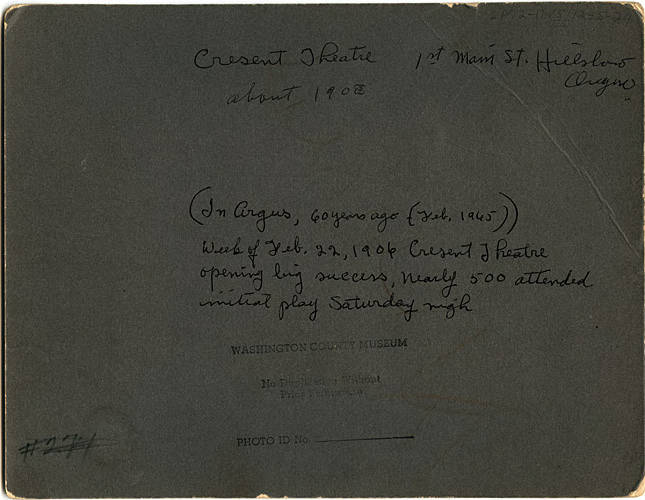 Cresent Theatre 1st Main St. Hillsboro
Oregon
about 1908
(In Argus, 60 years ago (Feb. 1965))
Week of Feb. 22, 1906 Cresent Theatre
opening big success, nearly 500 attended
initial play Saturday nigh
WASHINGTON COUNTY MUSEUM
No Duplication Without
Prior Permission
PHOTO ID No.
#271